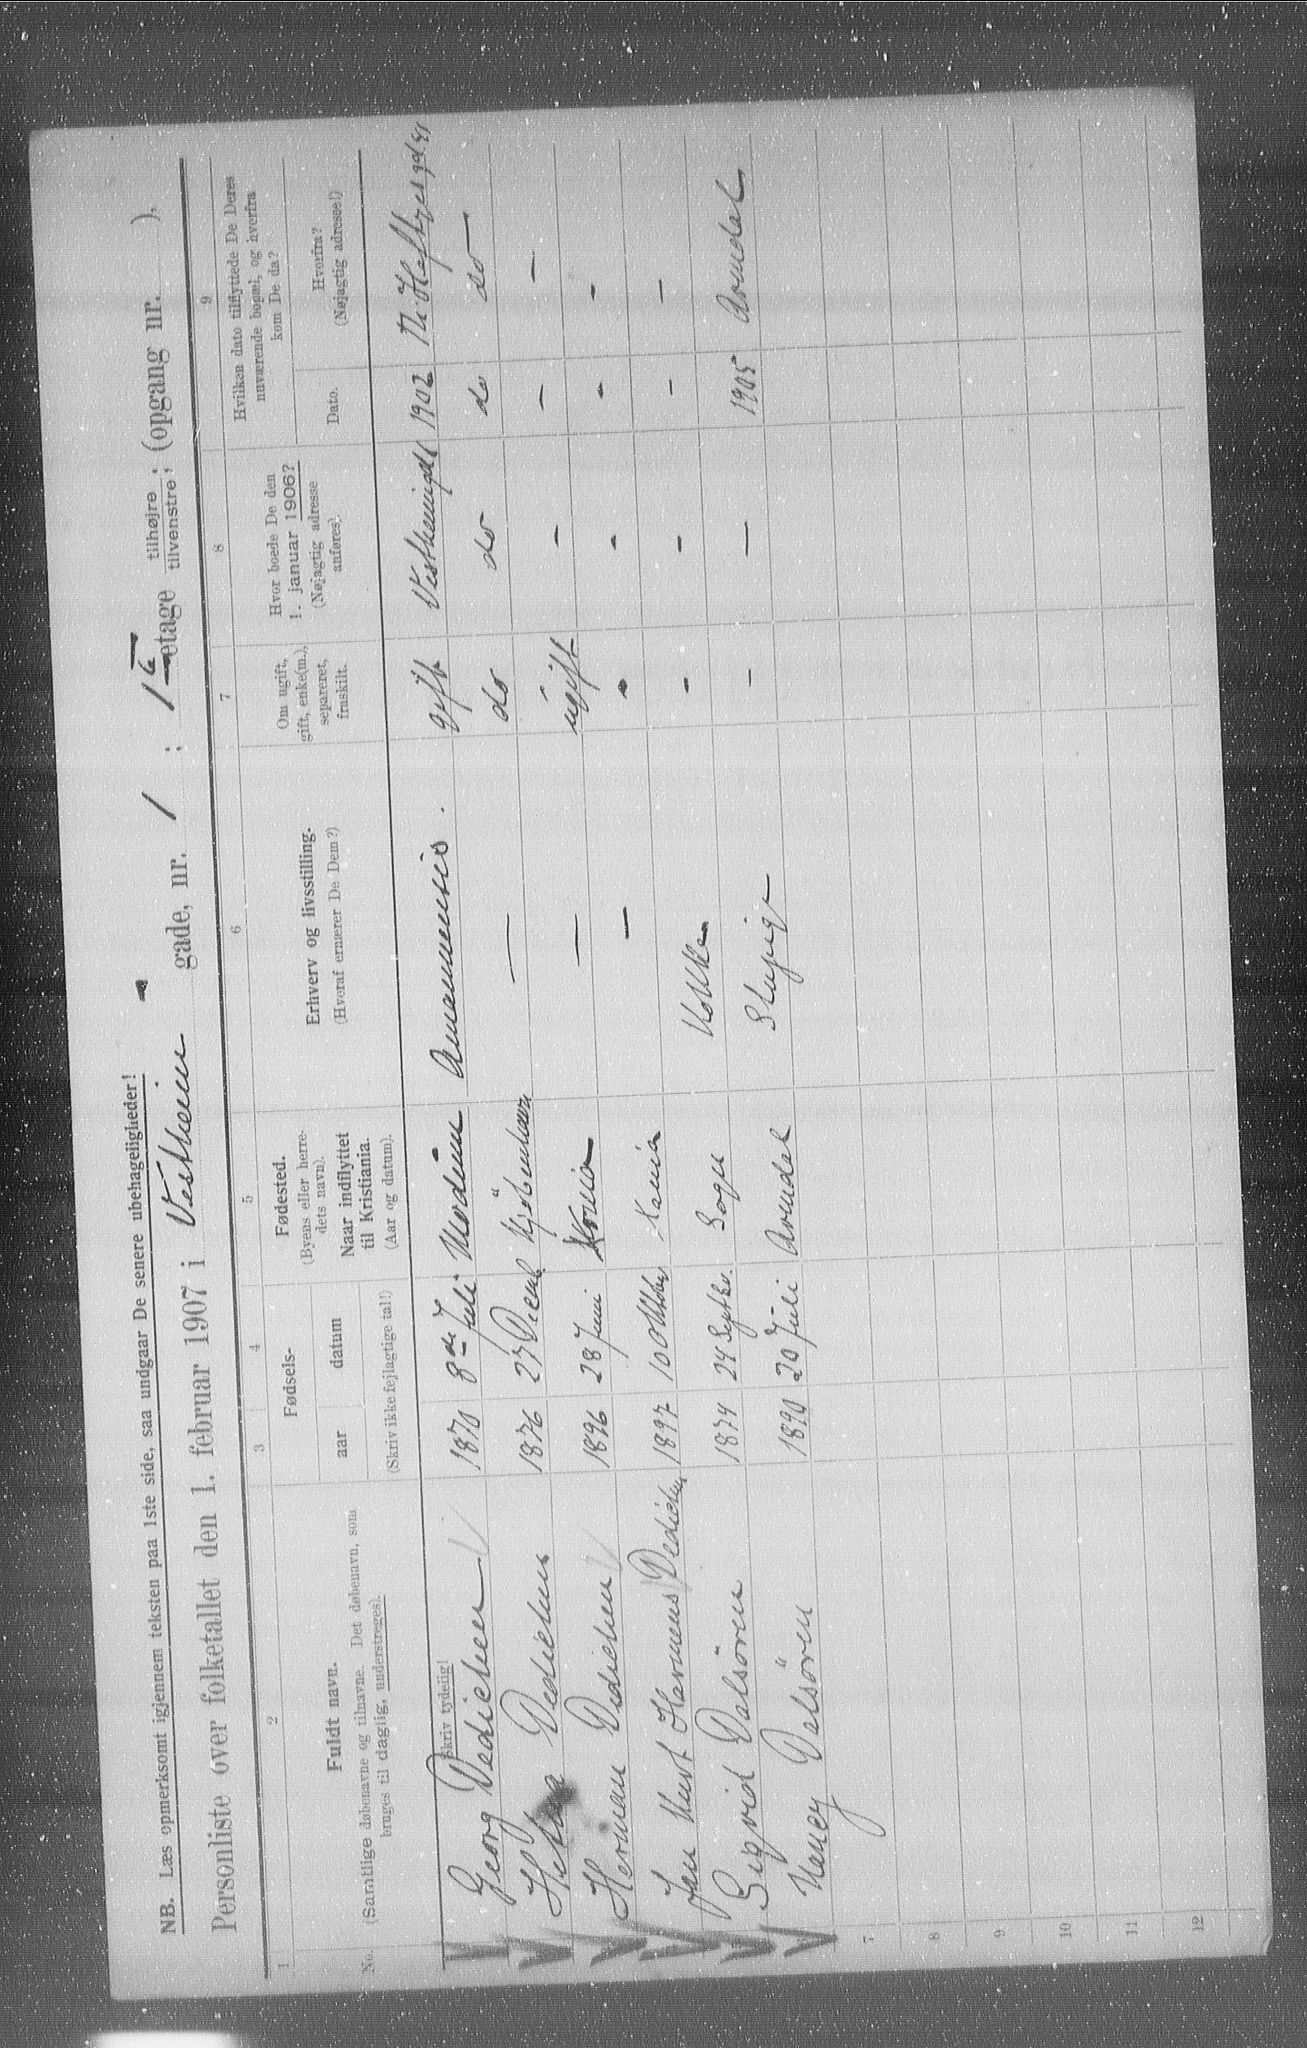 NB. Læs opmerksomt igjennem teksten paa 1ste side, saa undgaar De senere ubehageligheder!
Personliste over folketallet den 1. februar 1907 i Vestheim gade, nr. 1 ; 1 etage tilhøjre tilvenstre ; (opgang nr. ),
1 2 3 4 5 6 7 8 9
No.
Fuldt navn.
(Samtlige døbenavne og tilnavne. Det døbenavn, som
bruges til daglig, understreges).
Skriv tydelig!
Fødsels-
aar datum
(Skriv ikke fejlagtige tal!)
Fødested.
(Byens eller herre-
dets navn).
Naar indflyttet
til Kristiania.
(Aar og datum).
Erhverv og livsstilling.
(Hvoraf ernærer De Dem?)
Om ugift,
gift, enke(m.),
separeret,
fraskilt.
Hvor boede De den
1. januar 1906?
(Nøjagtig adresse
anføres).
Hvilken dato tilflyttede De Deres
nuværende bopæl, og hverfra
kom De da?
Dato.
Hvorfra?
(Nøjagtig adresse!)
Georg Dedichen 1870 8de Juli Modum Amanuensis. gift Vestheimgd 1 1902 Th. Heftyes gd.
Dedichen 1876 27 Decemb Kjöbenhavn — do do do do —
Herman Dedichen 1896 28 Juni Kania — ugift – – –
Jan Dedichen 1897 10 Oktober Kania — – – – –
Sigrid Dalsören 1874 24 Septbr. Sogn Kokke – – – –
Nancy Dalsören 1890 20 Juli Arendal Stuepige – — 1905 Arendal
7
8
9
10
11
12